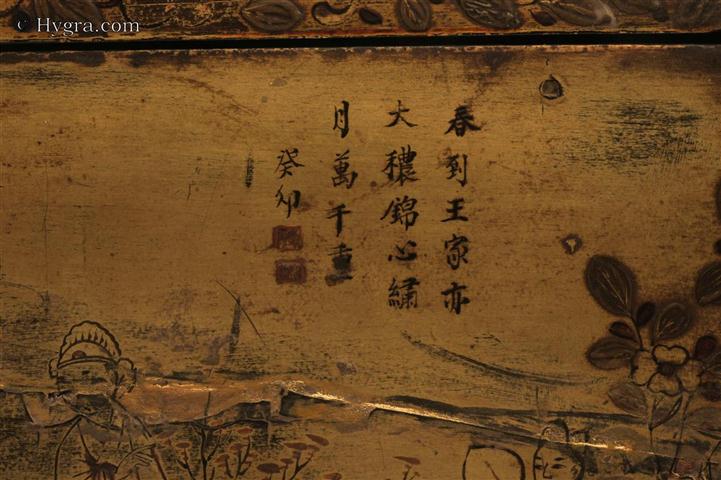 © Hygra.com
春到王家亦
大穠錦心繡
月萬千重
癸卯